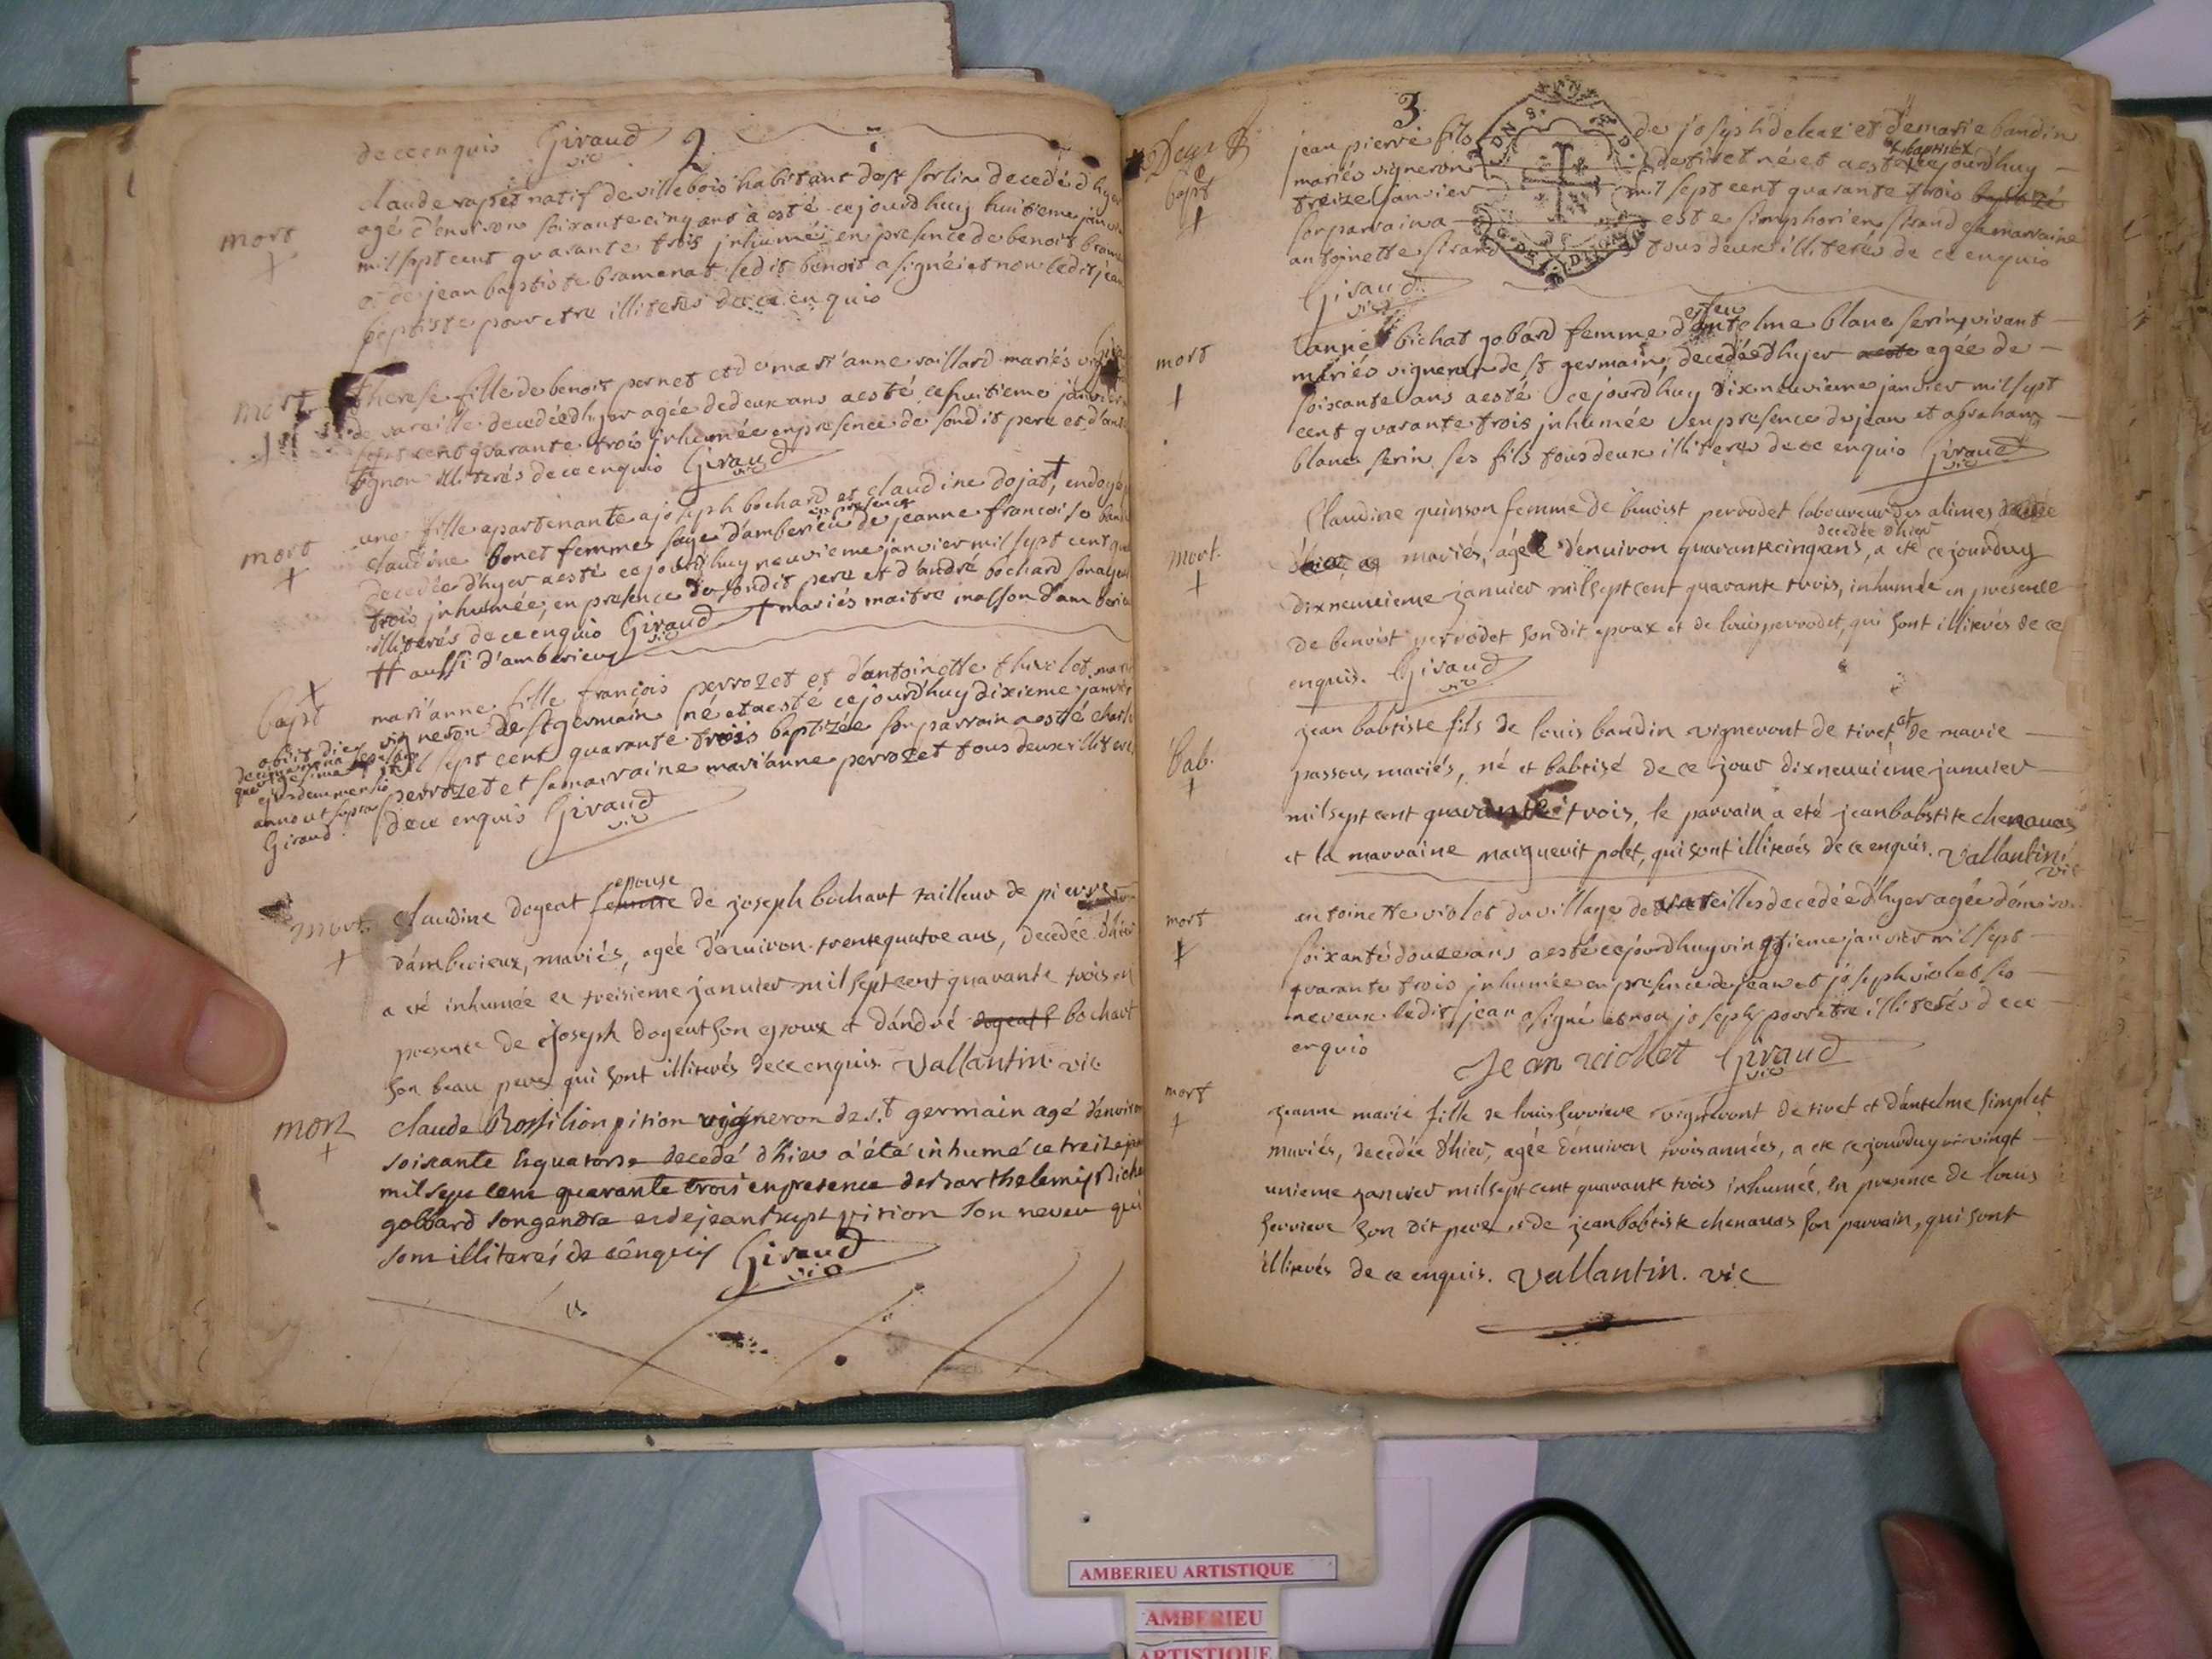 de ce enquis Giraud vic 2
claude rapet natif de villebois habitant de st sorlin decedé d'hyer
mort agé d'environ soixante cinq ans a esté cejourdhuy huitieme
mil sept cent quarante trois inhumé en presence de benoit
et de jean baptiste bramerat ledit benoit a signé et non ledit jean
baptiste pour etre illiteres de ce enquis
mort therese fille de benoit pernet et de mari'anne vaillard mariés
de vareille decedée d'hyer agée de deux ans a esté ce huitieme janvier
sept cent quarante trois inhumée en presence de sondit pere et
illiterés de ce enquis Giraud vic
mort une fille apartenante a joseph bochard et claudine dojat + endoyée
en presence
claudine bonet femme sage d'amberieu de jeanne francoise
decedée d'hyer a esté cejourdhuy neuvieme janvier mil sept cent
trois inhumée, en presence de sondit pere et d'andré bochard
illiterés de ce enquis Giraud vic + mariés maitre masson d'amberieu
# aussi d'amberieu
bapt mari'anne fille françois perrozet et d'antoinette thuelot
vigneron de st germain né et a esté cejourd'huy dixieme janvier
mil sept cent quarante trois baptizée son parrain a esté
perrozet et sa marraine mari'anne perrozet tous deux
de ce enquis Giraud vic
obiit die
ejusdem mensis
anno ut supra
Giraud
epouse
mort claudine dogeat femme de joseph bochart tailleur de pierre
d'amberieux, mariés, agée d'enuiron trente quatre ans, decedée d'hier
a eté inhumée ce treisieme januier mil sept cent quarante trois en
presence de joseph dogeat son epoux et d'andré dogeat bochart
son beau pere qui sont illiterés de ce enquis. Vallantin. vic
mort claude Rossilion pition vigneron de s.t germain agé d'environ
soixante & quatorse decedé d'hier a été inhumé ce treize
mil sept cent quarante trois en presence de barthelemy
gobbard son gendre et de jean bapt pition son neveu qui
sont illiterés de ce enquis Giraud vic
3
Deux
bapt jean pierre fils de joseph deleaz et de marie bandin
baptisé
mariés vigneron de tiret né et a esté cejourd'huy
treize janvier mil sept cent quarante trois baptizé
son parain a esté simphorien tirand sa marraine
antoinette tirand tous deux illiterés de ce enquis
Giraud vic
et feu
mort anne bichat gobard femme d'antelme blanc serin vivant
mariés vigneron de st germain, decedée d'hyer a esté agée de
soixante ans a esté cejourd'huy dixneuvieme janvier mil sept
cent quarante trois inhumée en presence de jean et abraham
blanc serin ses fils tous deux illiteres de ce enquis Giraud vic
Claudine quinson femme de benoist perrodet laboureur des alimes
decedée d'hier
mort. mariés, agée d'enuiron quarante cinq ans, a eté cejourduy
dixneuuieme januier mil sept cent quarante trois, inhumée en presence
de benoist perrodet son dit epoux et de louis perrodet, qui sont illiterés de ce
enquis. Giraud vic
jean babtiste fils de louis bandin vigneront de tiret et de marie
Bab. passou, mariés, né et babtisé de ce jour dixneuuieme januier
mil sept cent quarante trois, le parrain a eté jean babstite chenauas
et la marraine marguerit polet, qui sont illiterés de ce enquis. Vallantin vic
mort antoinette violet du village de vareilles decedée d'hyer agée d'environ
soixante douze ans a esté cejourdhuy vingtieme janvier mil sept
quarante trois inhumée en presence de jean et joseph violet ses
neveux ledit jean a signé et non joseph pour etre illiterés de ce
enquis Jean violet Giraud vic
mort jeanne marie fille de louis ferrieve vigneront de tiret et d'antelme simplet
mariés, decedée d'hier, agée d'enuiron trois années, a eté cejourduy vingt
unieme januier mil sept cent quarante trois inhumée, en presence de louis
ferrieve son dit pere et de jean babtiste chenauas son parrain, qui sont
illiterés de ce enquis. Vallantin. vic
AMBERIEU ARTISTIQUE
AMBERIEU
ARTISTIQUE